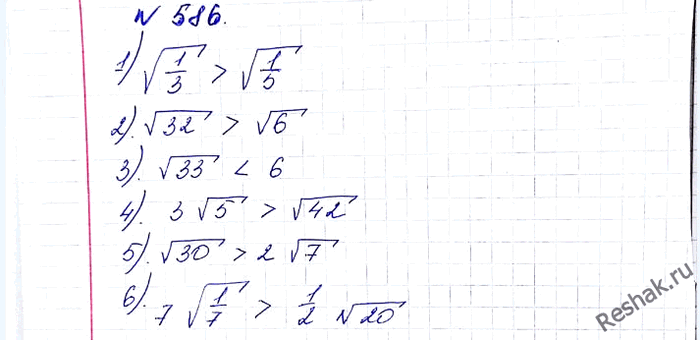 № 586.
1). √(1/3) > √(1/5)
2). √32 > √6
3). √33 < 6
4). 3 √5 > √42
5). √30 > 2 √7
6). 7 √(1/7) > 1/2 √20
Reshak.ru